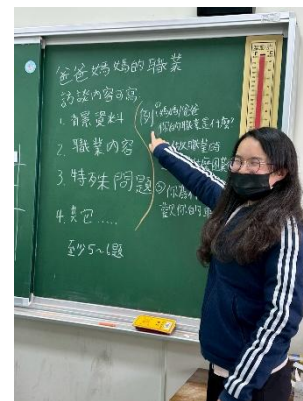 爸爸媽媽的職業
訪談內容可寫
1. 背景資料
2. 職業內容
3. 特殊問題
4. 其它.....
至少5~6題
例:
媽媽爸爸
你的職業是什麼?
職業時
你為
歡你的